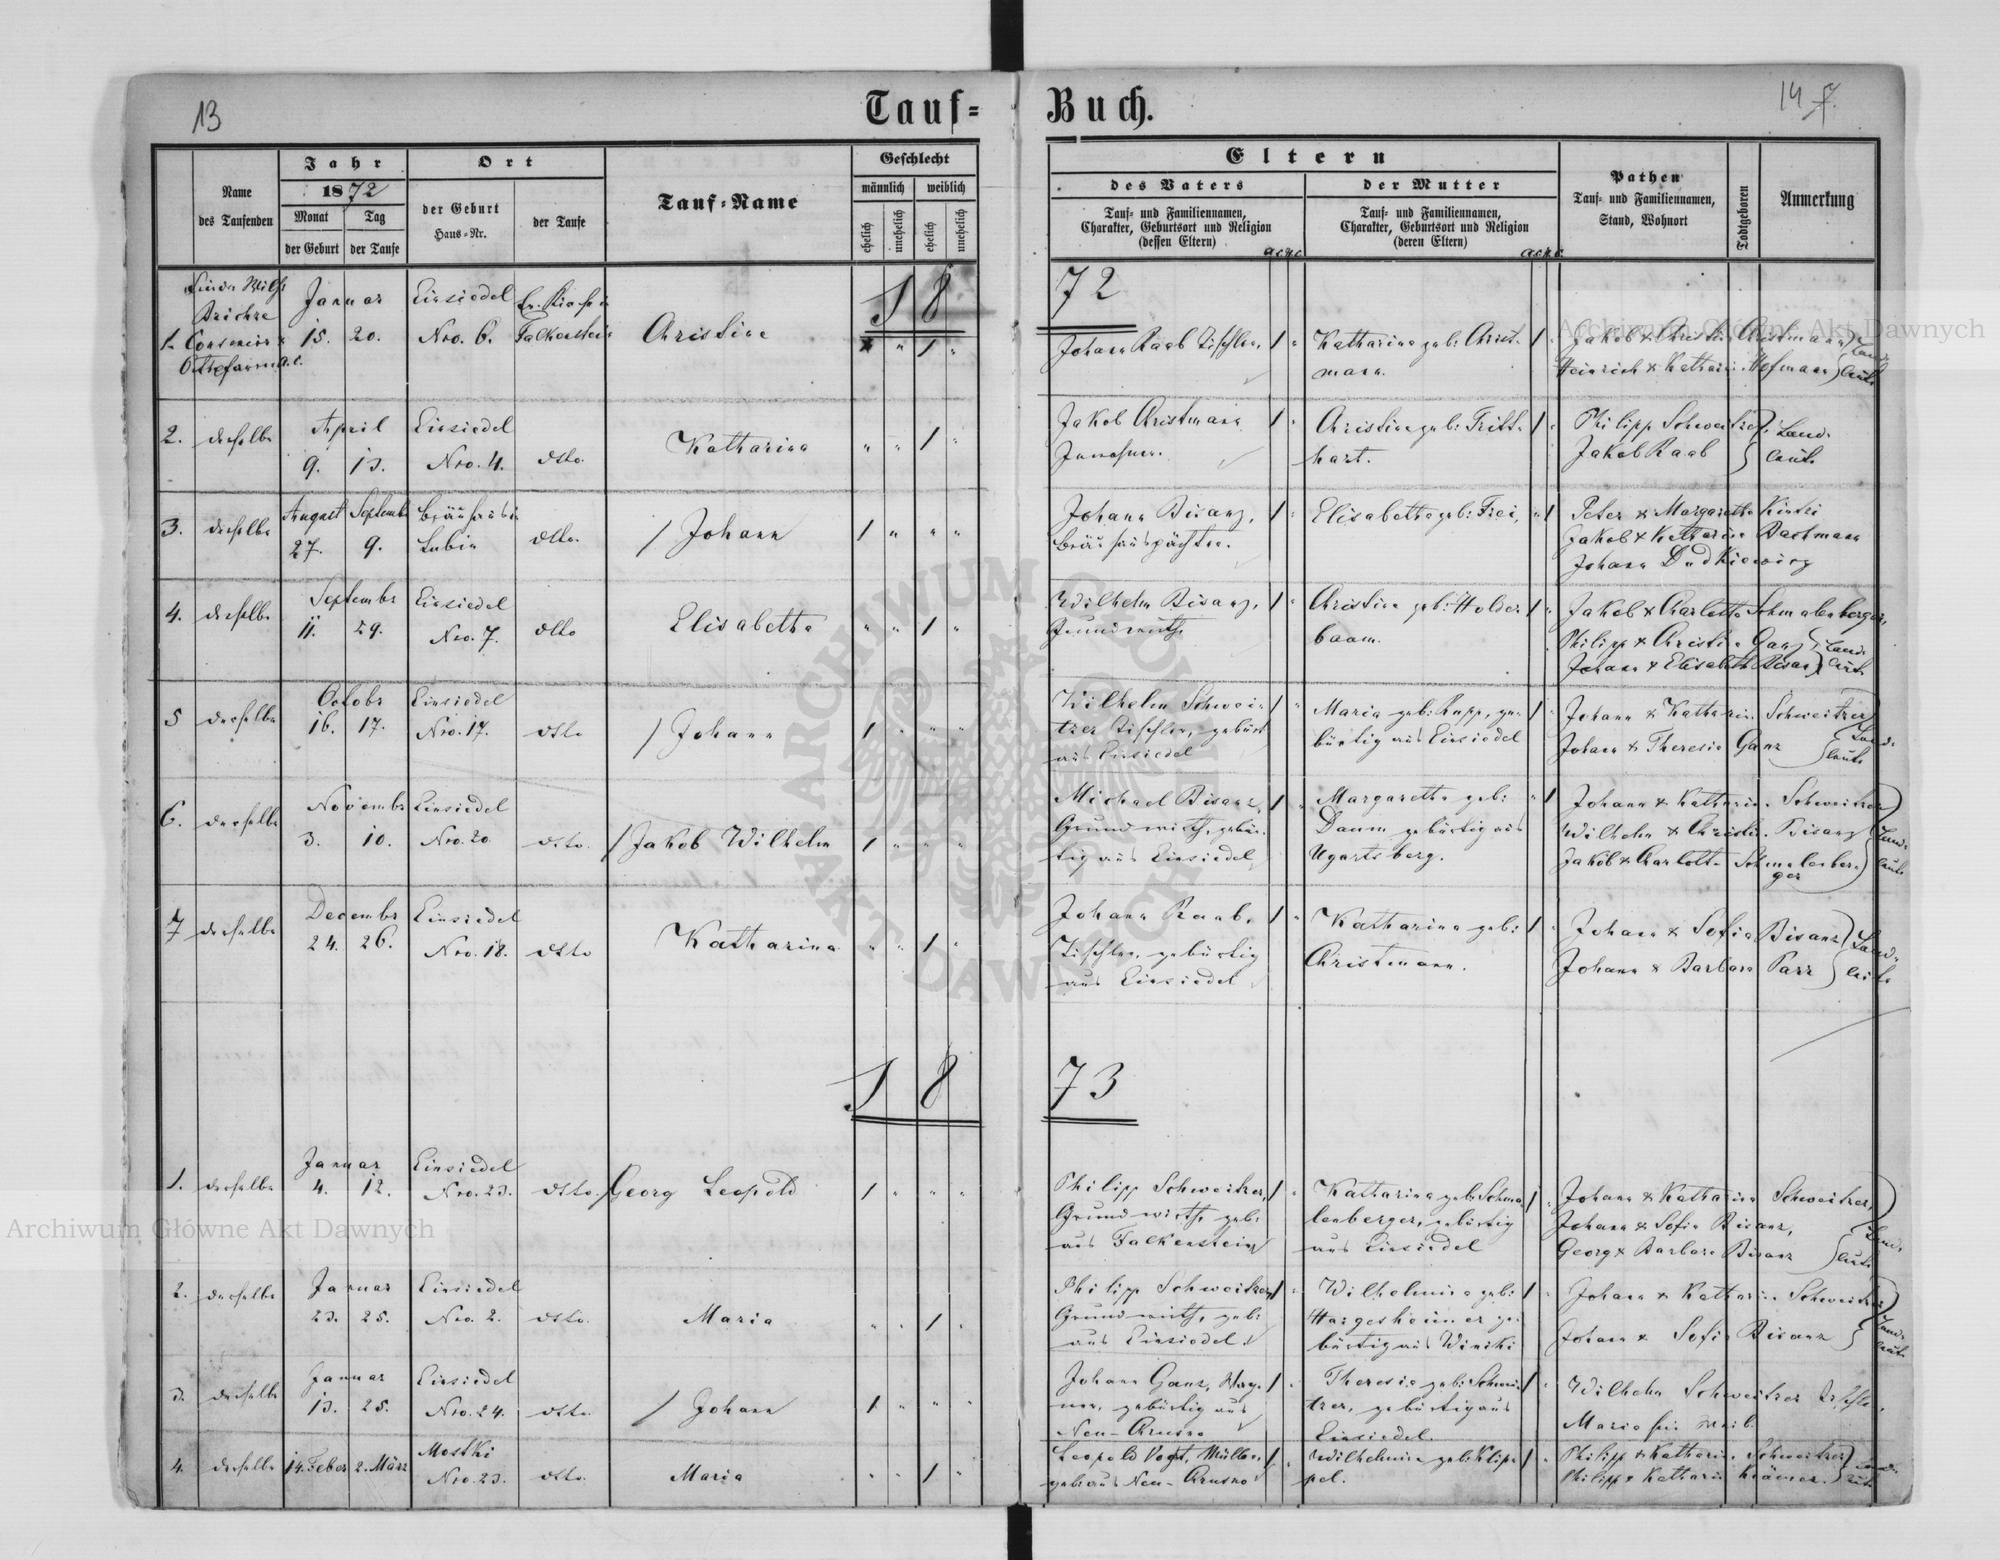 13
Tauf=
Buch.
14 7.
Name
des Taufenden
Jahr
1872
Monat
Tag
der Geburt
der Taufe
Ort
der Geburt
Haus=Nr.
der Taufe
Tauf=Name
Geschlecht
männlich
weiblich
ehelich
unehelich
ehelich
unehelich
Eltern
des Vaters
Tauf= und Familiennamen,
Charakter, Geburtsort und Religion
(dessen Eltern)
der Mutter
Tauf= und Familiennamen,
Charakter, Geburtsort und Religion
(deren Eltern)
Pathen
Tauf= und Familiennamen,
Stand, Wohnort
Todtgeboren
Anmerkung
18 72
1.
Januar
15. 20.
Einsiedel
Nro. 6.
Falkenstein
Christine
1
Johann Raab Tischler,
Katharina geb: Christ-
mann.
Jakob & Christin Christmann
Heinrich & Katharin Hofmann
2. derselbe
April
9. 13.
Einsiedel
Nro. 4.
dtto.
Katharina
1
Jakob Christmann
Christine geb: Tritt-
hart.
Philipp Schweitzer
Jakob Raab
Land-
leute
3. derselbe
August September
27. 9.
Bräuhaus in
Lubin
dtto.
Johann
1
Johann Bisanz,
Bräuhauspächter.
Elisabetha geb: Frei,
Peter & Margaretha
Jakob & Katharina Bastmann
Johann Dudkiewicz
4. derselbe
Septembr
11. 29.
Einsiedel
Nro. 7.
dtto
Elisabetha
1
Wilhelm Bisanz,
Grundwirth
Christine geb: Holder-
baum.
Jakob & Charlotte Schmalenberger,
Philipp & Christin Ganz
Johann & Elisabeth Bisanz
Land-
leute
5 derselbe
Octobr
16. 17.
Einsiedel
Nro. 17.
dtto
Johann
1
Wilhelm Schwei-
tzer Tischler, gebürt
aus Einsiedel
Maria geb: Rupp, ge-
bürtig aus Einsiedel
Johann & Katharin Schweitzer
Johann & Theresia Ganz
Land-
leute
6. derselbe
Novembr
3. 10.
Einsiedel
Nro. 20
dtto.
Jakob Wilhelm
1
Michael Bisanz,
Grundwirth, gebür-
tig aus Einsiedel
Margaretha geb:
Daum gebürtig aus
Ugartsberg.
Johann & Katharin Schweitzer
Wilhelm & Christin Bisanz
Jakob & Charlotte Schmalenber-
ger
Land-
leute
7 derselbe
Decembr
24. 26.
Einsiedel
Nro. 18.
dtto
Katharina
1
Johann Raab,
Tischler, gebürtig
aus Einsiedel
Katharina geb:
Christmann.
Johann & Sofia Bisanz
Johann & Barbara Parr
Land-
leute
18 73
1. derselbe
Januar
4. 12.
Einsiedel
Nro. 23.
dtto.
Georg Leopold
1
Philipp Schweitzer,
Grundwirth, geb:
aus Falkenstein
Katharina geb: Schma-
lenberger, gebürtig
aus Einsiedel
Johann & Katharina Schweitzer,
Johann & Sofia Bisanz,
Georg & Barbara Bisanz
Land-
leute
2. derselbe
Januar
23. 25.
Einsiedel
Nro. 2.
dtto.
Maria
1
Philipp Schweitzer
Grundwirth, geb:
aus Einsiedel.
Wilhelmine geb:
Hargesheimer ge-
bürtig aus Winiki
Johann & Katharin Schweitzer
Johann & Sofia Bisanz
Land-
leute
3. derselbe
Januar
13. 25.
Einsiedel
Nro. 24.
dtto.
Johann
1
Johann Ganz, Wag-
ner, gebürtig aus
Neu-Chrusno
Theresia geb: Schwei-
tzer, gebürtig aus
Einsiedel.
Wilhelm Schweitzer Tischler,
Maria sein Weib.
4. derselbe
14. Feber 2. März
Mostki
Nro. 23.
dtto.
Maria
1
Leopold Vogt, Müller,
geb: aus Neu-Chrusno
Wilhelmine geb: Klip-
pel.
Philipp & Katharin Schweitzer
Philipp & Katharin Krämer.
ARCHIWUM GŁÓWNE AKT DAWNYCH
Archiwum Główne Akt Dawnych
Archiwum Główne Akt Dawnych